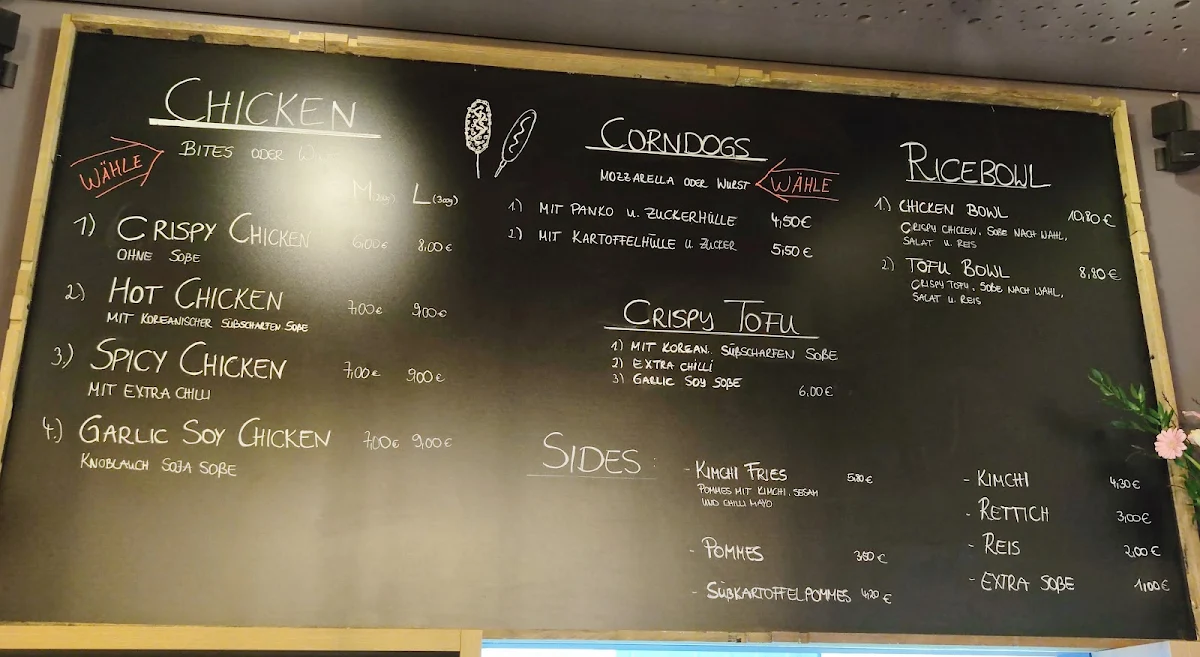 CHICKEN
BITES ODER
WÄHLE
M L (300g)
1) CRISPY CHICKEN 6,00€ 8,00€
OHNE SOßE
2.) HOT CHICKEN 7,00€ 9,00€
MIT KOREANISCHER SÜßSCHARFEN SOßE
3.) SPICY CHICKEN 7,00€ 9,00€
MIT EXTRA CHILLI
4.) GARLIC SOY CHICKEN 7,00€ 9,00€
KNOBLAUCH SOJA SOßE
CORNDOGS
MOZZARELLA ODER WURST WÄHLE
1.) MIT PANKO U. ZUCKERHÜLLE 4,50€
2.) MIT KARTOFFELHÜLLE U. ZUCKER 5,50€
CRISPY TOFU
1) MIT KOREAN. SÜßSCHARFEN SOßE
2) EXTRA CHILLI
3) GARLIC SOY SOßE
6,00€
RICEBOWL
1.) CHICKEN BOWL 10,80€
CRISPY CHICKEN, SOßE NACH WAHL,
SALAT U. REIS
2.) TOFU BOWL 8,80€
CRISPY TOFU, SOßE NACH WAHL,
SALAT U. REIS
SIDES :
- KIMCHI FRIES €
POMMES MIT KIMCHI, SESAM
UND CHILLI MAYO
- POMMES €
- SÜßKARTOFFELPOMMES 4,20 €
- KIMCHI 4,30€
- RETTICH 3,00€
- REIS 2,00€
- EXTRA SOßE 1,00€